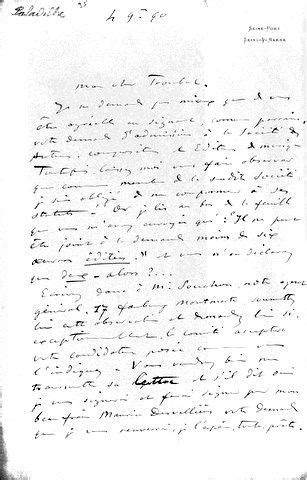 Paladilhe
4 9bre 90
Seine-Port
Seine-et-Marne
mon cher Troubat,
Je ne demande pas mieux que de vous
être agréable en signant, comme parrain,
votre demande d'admission à la Société des
Auteurs, compositeurs et Editeurs de musique
Toutefois laissez moi vous faire observer
que comme membre de la susdite Société
je suis obligé de me conformer à ses
statuts. Or je lis au bas de la feuille
que vous m'avez envoyée qui : "Il ne peut
être joint à la demande moins de six
œuvres éditées" et vous n'en déclarez
que deux - alors ?...
Ecrivez donc à Mr. Souchon, notre agent
général, 17 faubourg Montmartre soumettez
lui cette observation et demandez lui si,
exceptionnellement, le comité acceptera
votre candidature posée comme vous
l'indiquez. Vous voudrez bien me
transmettre sa lettre et s'il dit oui
je vous signerai et ferai signer par mon
beau frère Maurice Desvallières votre demande
que je vous renverrai, je l'espère, toute prête.